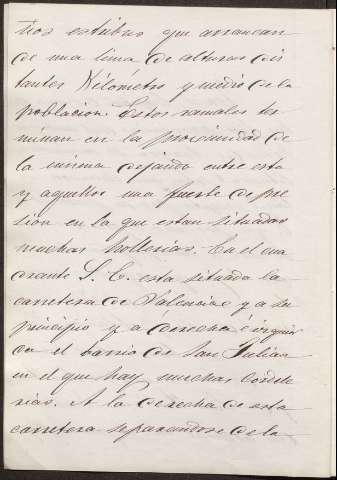 tros estribos que arrancan
de una linea de alturas dis
tantes Kilómetro y medio de la
poblacion. Estos ramales ter
minan en la proximidad de
la misma dejando entre esta
y aquellos una fuerte depre
sion en la que estan situadas
muchas hollerias. En el cua
drante S. E. esta situada la
carretera de Valencia y a su
principio y a derecha é izquier
da el barrio de San Julian
en el que hay muchas cordele
rias. A la derecha de esta
carretera separandose de la